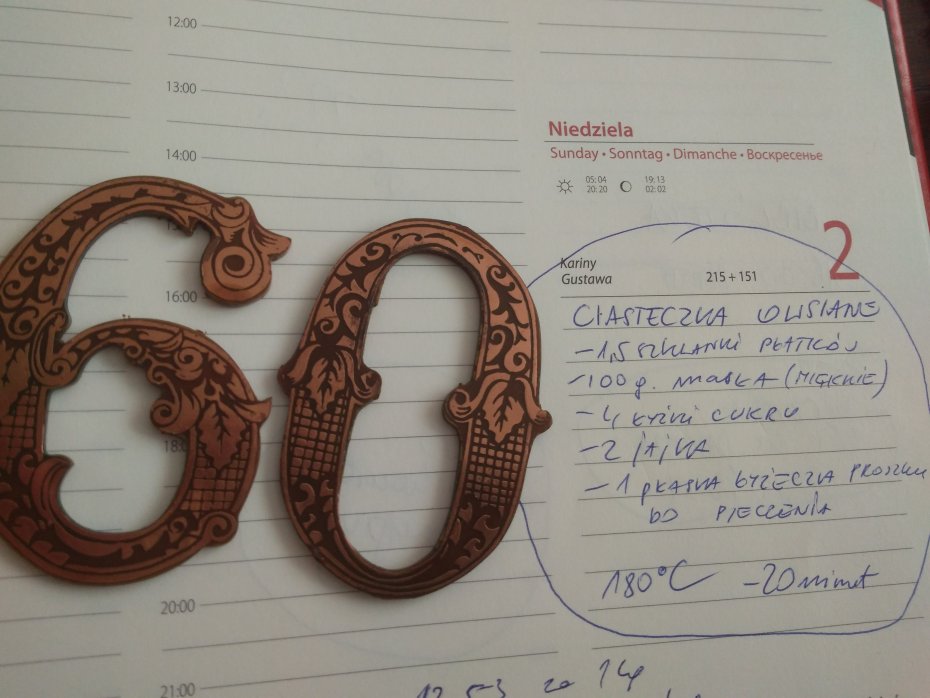 12:00
13:00
14:00
16:00
18:0
20:00
21:00
60
Niedziela
Sunday • Sonntag • Dimanche • Воскресенье
05:04 19:13
20:20 02:02
2
Kariny
Gustawa
215 + 151
CIASTECZKA OWSIANE
- 1,5 SZKLANKI PŁATKÓW
- 100 g. MASŁA (MIĘKKIE)
- 4 ŁYŻKI CUKRU
- 2 JAJKA
- 1 PŁASKA ŁYŻECZKA PROSZKU
DO PIECZENIA
180°C - 20 minut